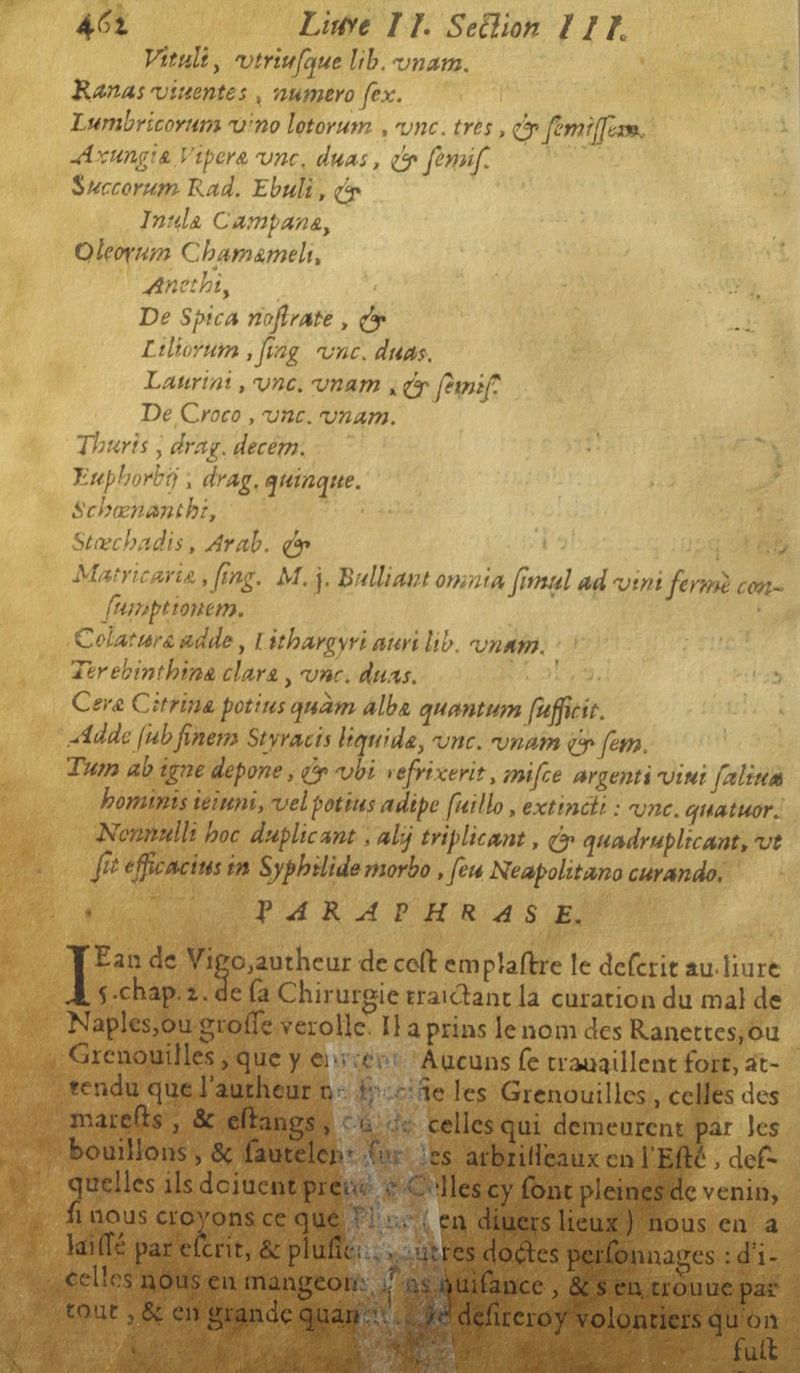 462 Liure II. Section III.
Vituli, vtriusque lib. vnam.
Ranas viuentes, numero sex.
Lumbricorum vino lotorum, vnc. tres, & semissem.
Axungiæ Viperæ vnc. duas, & semiſ.
Succorum Rad. Ebuli, &
Inulæ Campanæ,
Oleorum Chamæmeli,
Anethi,
De Spica noſtrate, &
Liliorum, ſing vnc. duas.
Laurini, vnc. vnam, & ſemiſ.
De Croco, vnc. vnam.
Thuris, drag. decem.
Euphorbij, drag. quinque.
Schœnanthi,
Stœchadis, Arab. &
Matricariæ, ſing. M. j. Bulliant omnia ſimul ad vini fermè con-
ſumptionem.
Colaturæ adde, Lithargyri auri lib. vnam.
Terebinthinæ claræ, vnc. duas.
Ceræ Citrinæ potius quàm albæ quantum ſufficit.
Adde ſub finem Styracis liquidæ, vnc. vnam & ſem.
Tum ab igne depone, & vbi refrixerit, miſce argenti viui ſaliua
hominis ieiuni, vel potius adipe ſuillo, extincti : vnc. quatuor.
Nonnulli hoc duplicant, alij triplicant, & quadruplicant, vt
ſit efficacius in Syphilide morbo, ſeu Neapolitano curando.
PARAPHRASE.
IEan de Vigo, autheur de ceſt emplaſtre le deſcrit au liure
5. chap. 2. de ſa Chirurgie traictant la curation du mal de
Naples, ou groſſe verolle. Il a prins le nom des Ranettes, ou
Grenouilles, que y Aucuns ſe trauaillent fort, at-
tendu que l'autheur les Grenouilles, celles des
mareſts, & eſtangs, celles qui demeurent par les
bouillons, & ſautelent ſur les arbriſſeaux en l'Eſté, deſ-
quelles ils doiuent Celles cy ſont pleines de venin,
ſi nous croyons ce que en diuers lieux) nous en a
laiſſé par eſcrit, & autres doctes perſonnages : d'i-
celles nous en mangeons nuiſance, & s'en trouue par
tout, & en grande deſireroy volontiers qu'on
fuſt